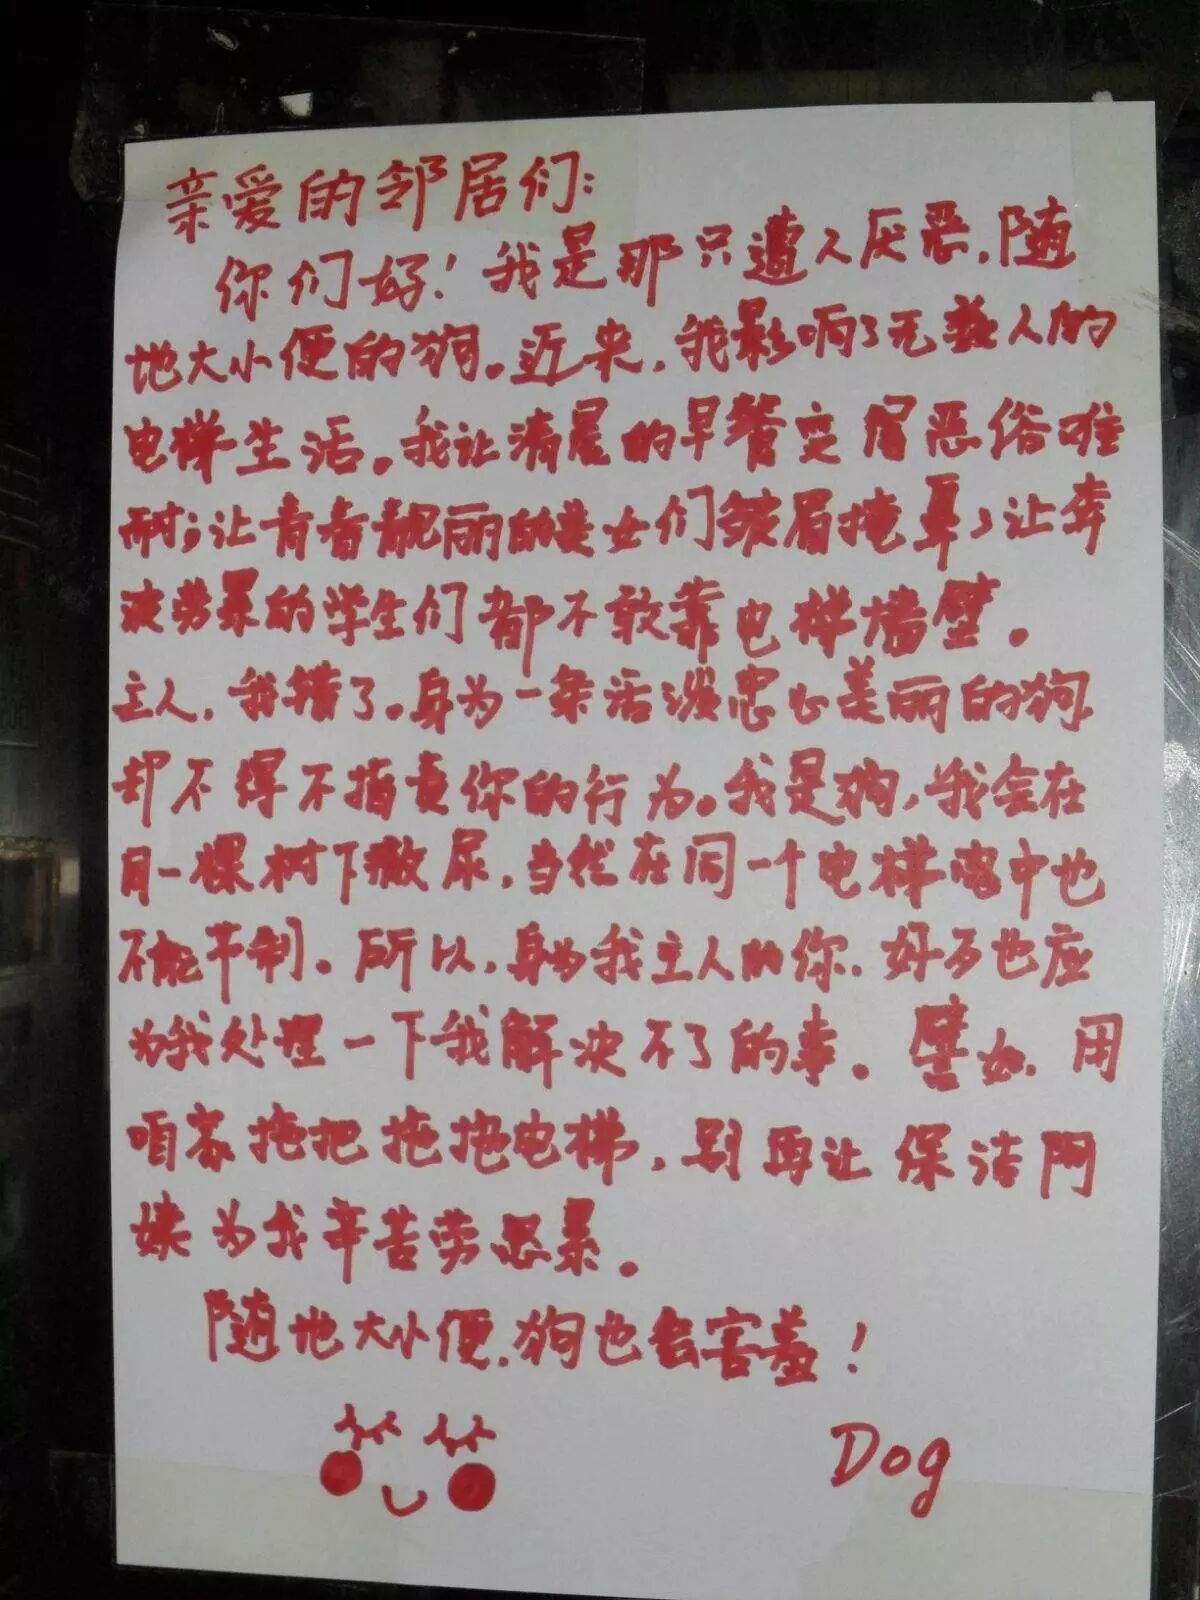 亲爱的邻居们:
你们好！我是那只遭人厌恶,随
地大小便的狗。近来,我影响了无数人的
电梯生活。我让清晨的早餐变得恶俗难
耐;让青春靓丽的美女们皱眉掩鼻;让奔
波劳累的学生们都不敢靠电梯墙壁。
主人,我错了。身为一条活泼忠心美丽的狗,
却不得不指责你的行为。我是狗,我会在
同一棵树下撒尿,当然在同一个电梯窝中也
不能节制。所以,身为我主人的你,好歹也应
为我处理一下我解决不了的事。譬如,用
咱家拖把拖拖电梯,别再让保洁阿
姨为我辛苦劳累。
随地大小便,狗也会害羞！
Dog